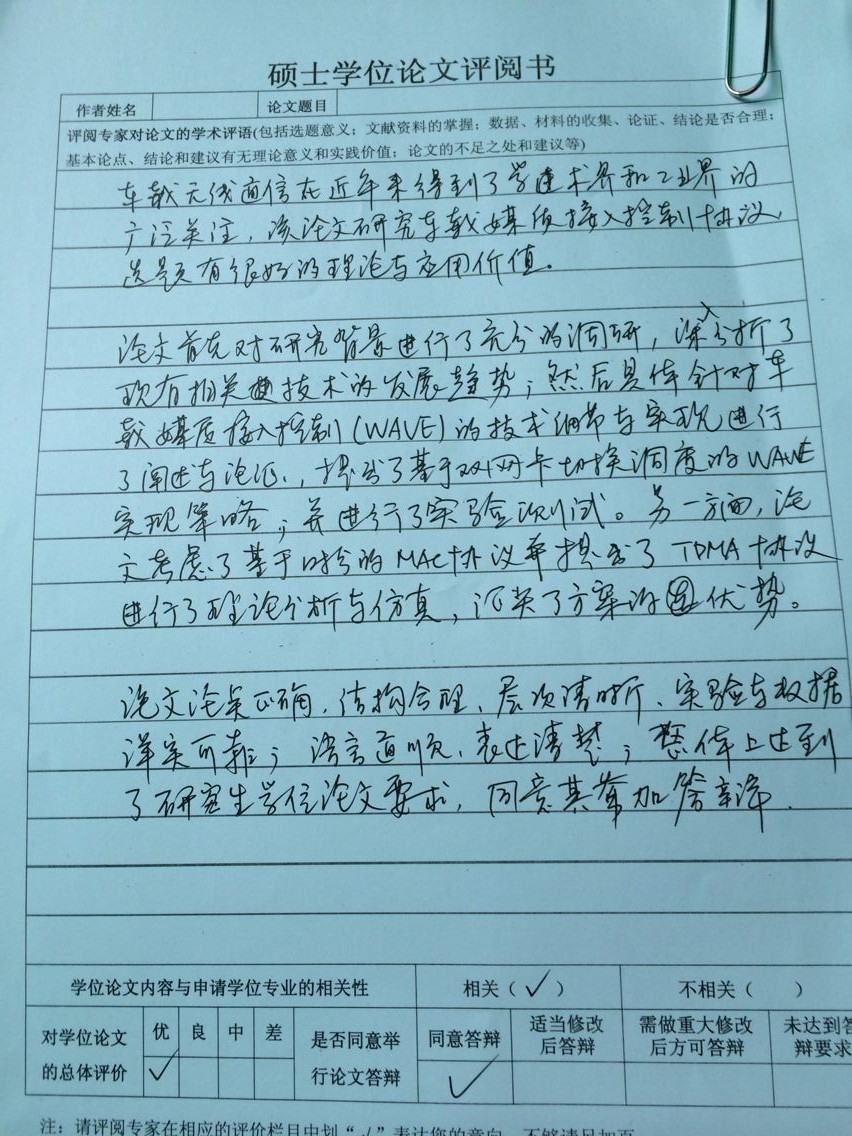 硕士学位论文评阅书
作者姓名 论文题目
评阅专家对论文的学术评语(包括选题意义；文献资料的掌握；数据、材料的收集、论证、结论是否合理；
基本论点、结论和建议有无理论意义和实践价值；论文的不足之处和建议等)
车载无线通信在近年来得到了学术界和工业界的
广泛关注，该论文研究车载媒质接入控制协议，
选题有很好的理论与应用价值。
论文首先对研究背景进行了充分的调研，深入分析了
现有相关技术的发展趋势；然后具体针对车
载媒质接入控制(WAVE)的技术细节与实现进行
了阐述与论证，提出了基于双网卡切换调度的WAVE
实现策略；并进行了实验测试。另一方面，论
文考虑了基于时分的MAC协议并提出了TDMA协议
进行了理论分析与仿真，证实了方案的优势。
论文论点正确，结构合理、层次清晰、实验与数据
详实可靠；语言通顺、表述清楚；整体上达到
了研究生学位论文要求，同意其参加答辩.
学位论文内容与申请学位专业的相关性 相关（✓） 不相关（ ）
对学位论文的总体评价 优 良 中 差 是否同意举行论文答辩 同意答辩 适当修改后答辩 需做重大修改后方可答辩 未达到答辩要求
✓ ✓
注：请评阅专家在相应的评价栏目中划“✓”表达您的意向，不够请另加页